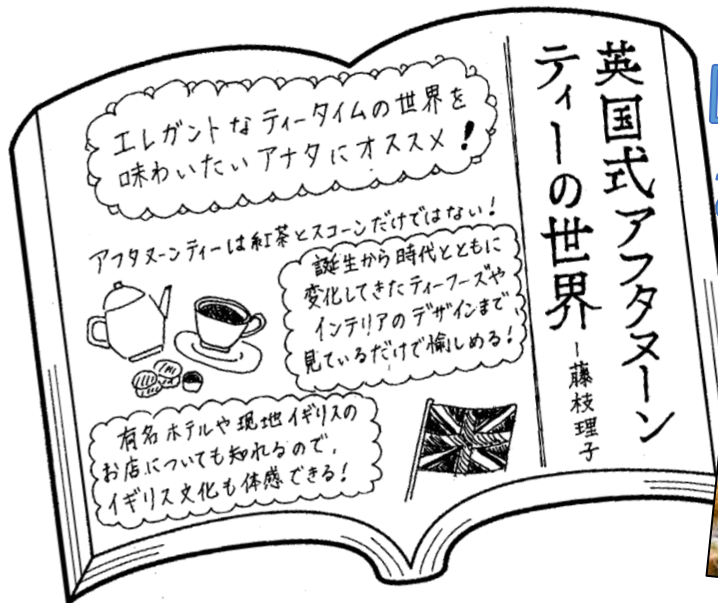 英国式アフタヌーン
ティーの世界
ー藤枝理子
エレガントなティータイムの世界を
味わいたいアナタにオススメ!
アフタヌーンティーは紅茶とスコーンだけではない!
誕生から時代とともに
変化してきたティーフーズや
インテリアのデザインまで
見ているだけで愉しめる!
有名ホテルや現地イギリスの
お店についても知れるので、
イギリス文化も体感できる!